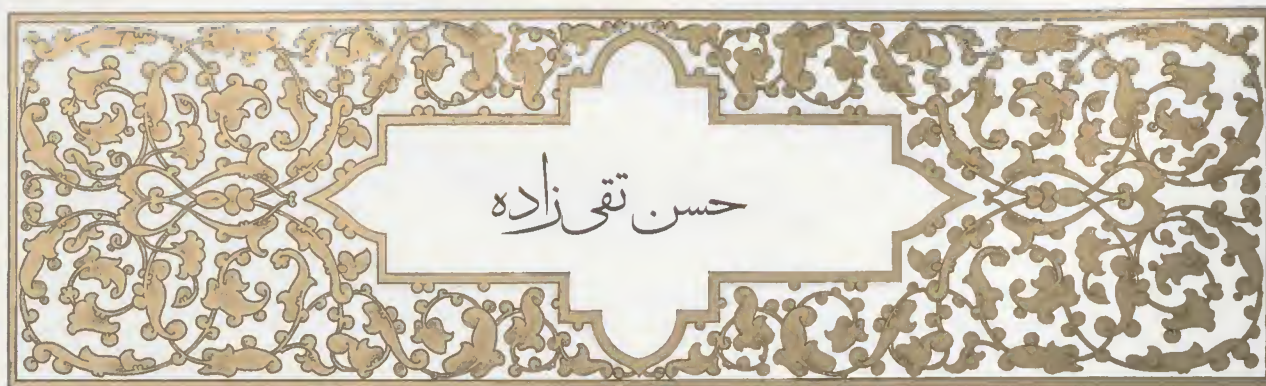 حسن تقی زاده